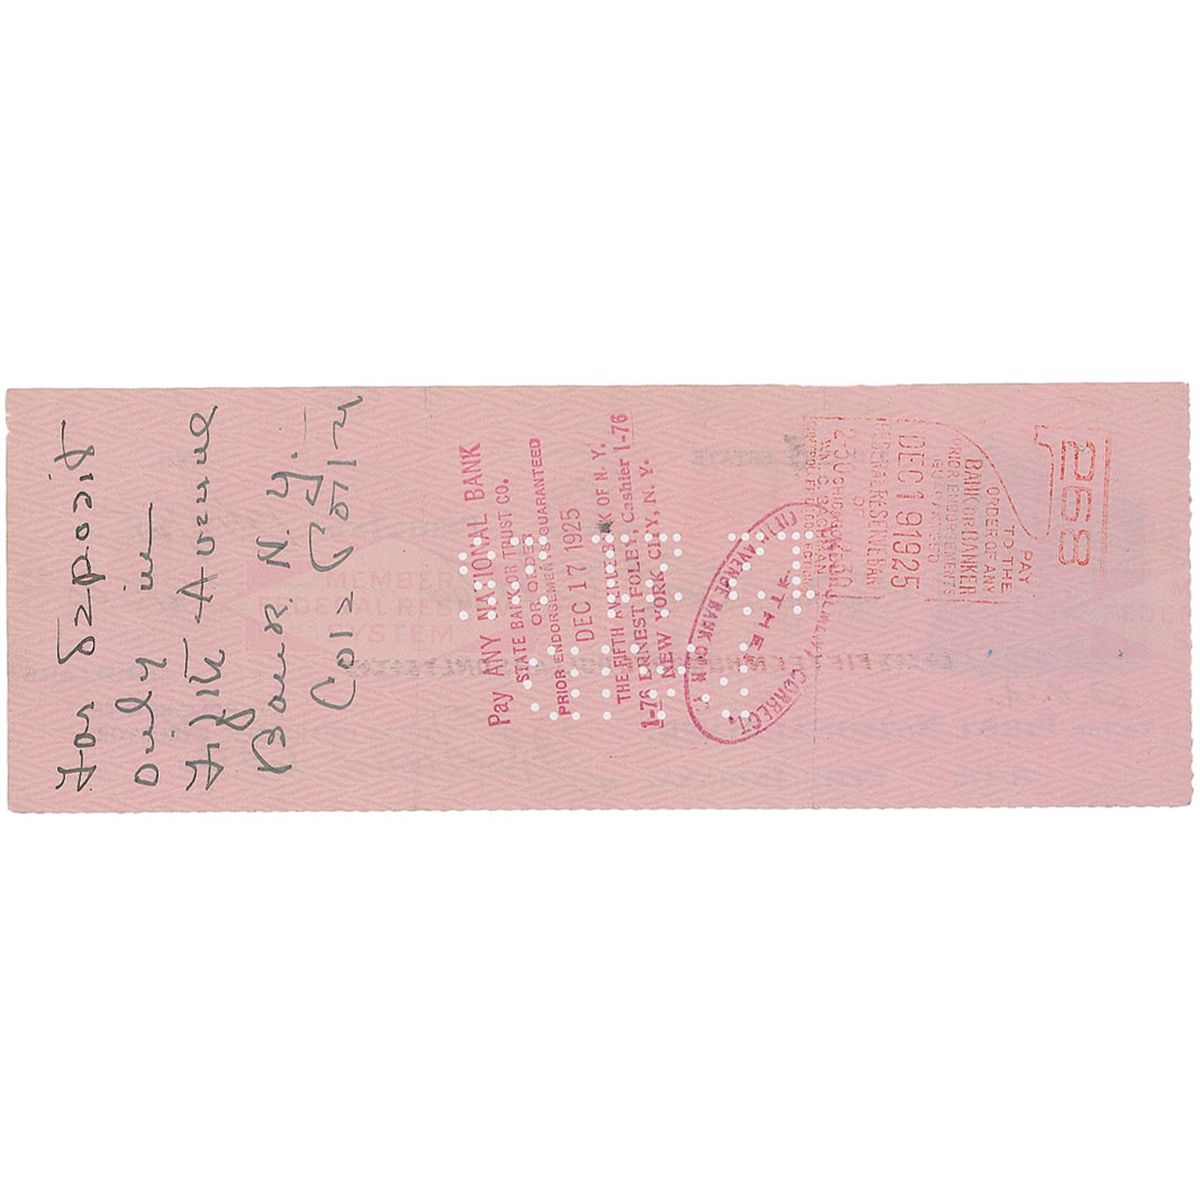 For Deposit
Only in
Fifth Avenue
Bank. N.Y.
Cole Porter
Pay ANY NATIONAL BANK
STATE BANK OR TRUST CO.
OR ORDER
PRIOR ENDORSEMENTS GUARANTEED
DEC 17 1925
THE FIFTH AVENUE BANK OF N.Y.
1-76 ERNEST FOLEY, Cashier 1-76
NEW YORK CITY, N.Y.
FIFTH AVENUE BANK OF N.Y.
CORRECT.
MEMBER
FEDERAL RESERVE
SYSTEM
PAY
TO THE
ORDER OF ANY
BANK OR BANKER
PRIOR ENDORSEMENTS
GUARANTEED
DEC 19 1925
FEDERAL RESERVE BANK
OF
2-30 CHICAGO 2-30
268